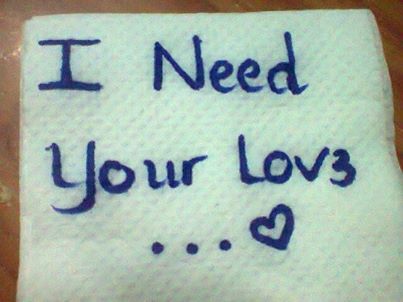 I Need
Your Lov3
...♡